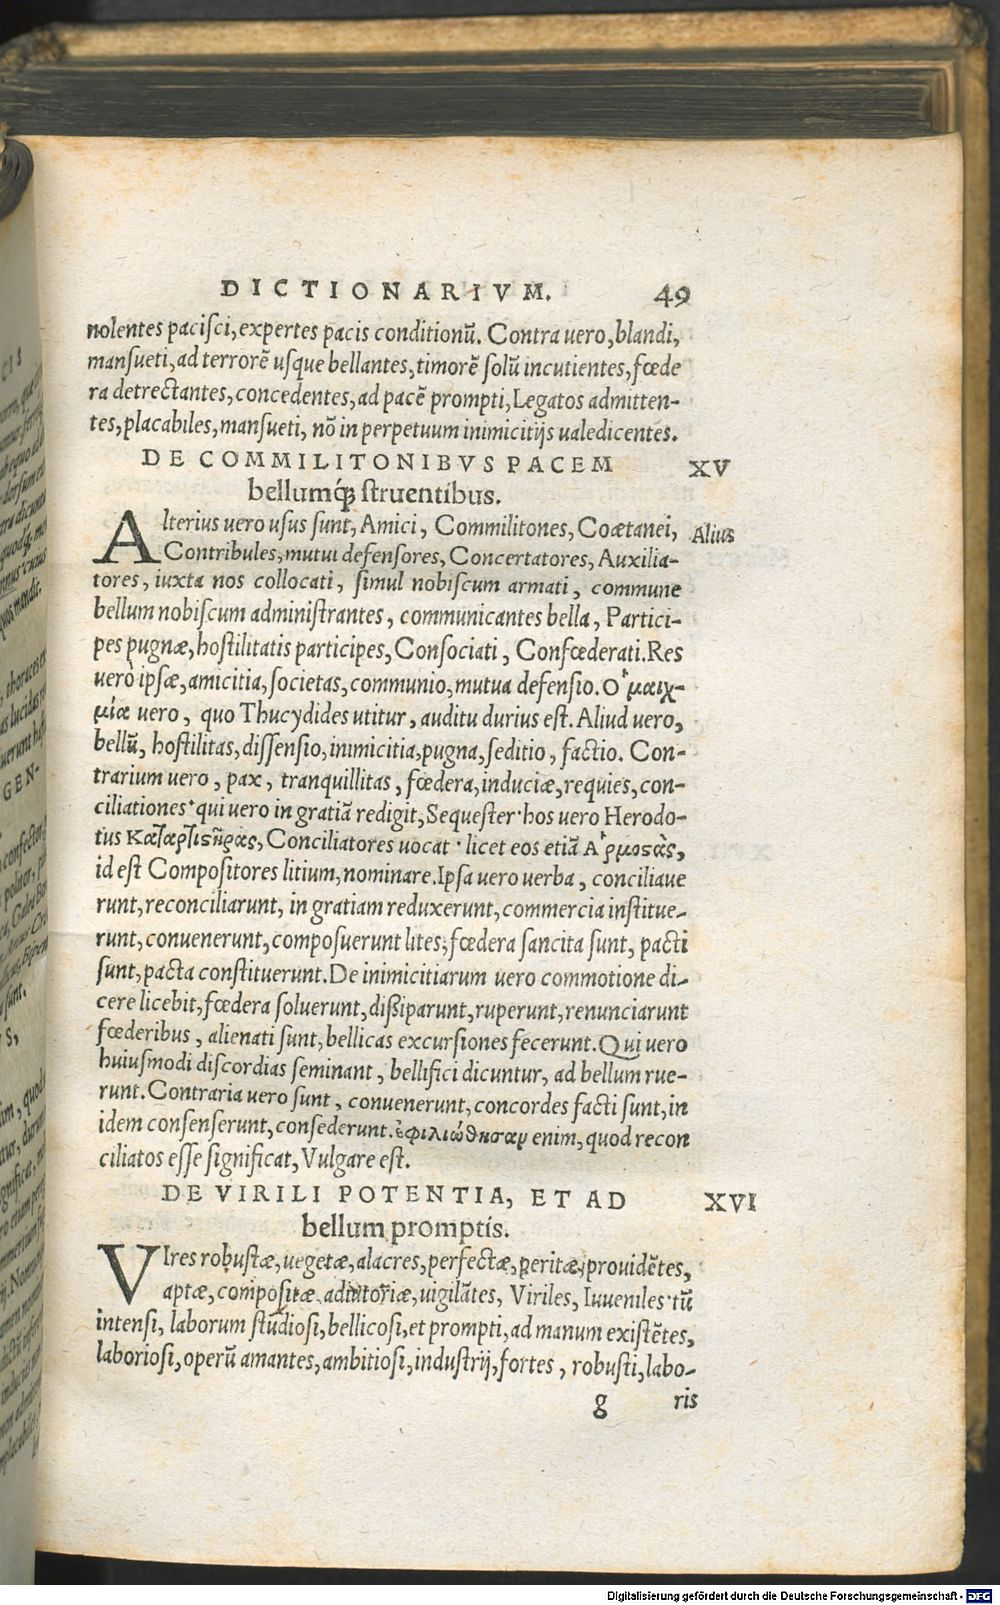 DICTIONARIVM. 49
nolentes pacisci, expertes pacis conditionū. Contra uero, blandi,
mansueti, ad terrorē usque bellantes, timorē solū incutientes, fœde
ra detrectantes, concedentes, ad pacē prompti, Legatos admitten-
tes, placabiles, mansueti, nō in perpetuum inimicitijs ualedicentes.
DE COMMILITONIBVS PACEM XV
bellumq́; struentibus.
Alterius uero usus sunt, Amici, Commilitones, Coætanei, Alius
Contribules, mutui defensores, Concertatores, Auxilia-
tores, iuxta nos collocati, simul nobiscum armati, commune
bellum nobiscum administrantes, communicantes bella, Partici-
pes pugnæ, hostilitatis participes, Consociati, Confœderati. Res
uero ipsæ, amicitia, societas, communio, mutua defensio. Ὁμαιχ-
μία uero, quo Thucydides utitur, auditu durius est. Aliud uero,
bellū, hostilitas, dissensio, inimicitia, pugna, seditio, factio. Con-
trarium uero, pax, tranquillitas, fœdera, induciæ, requies, con-
ciliationes· qui uero in gratiā redigit, Sequester· hos uero Herodo-
tus Καταρτιστῆρας, Conciliatores uocat· licet eos etiā Ἁρμοστὰς,
id est Compositores litium, nominare. Ipsa uero uerba, conciliaue
runt, reconciliarunt, in gratiam reduxerunt, commercia institue-
runt, conuenerunt, composuerunt lites, fœdera sancita sunt, pacti
sunt, pacta constituerunt. De inimicitiarum uero commotione di-
cere licebit, fœdera soluerunt, dißiparunt, ruperunt, renunciarunt
fœderibus, alienati sunt, bellicas excursiones fecerunt. Qui uero
huiusmodi discordias seminant, bellifici dicuntur, ad bellum rue-
runt. Contraria uero sunt, conuenerunt, concordes facti sunt, in
idem consenserunt, consederunt. ἐφιλιώθησαν enim, quod recon
ciliatos esse significat, Vulgare est.
DE VIRILI POTENTIA, ET AD XVI
bellum promptis.
VIres robustæ, uegetæ, alacres, perfectæ, peritæ, prouidētes,
aptæ, compositæ, adiutoriæ, uigilātes, Viriles, Iuueniles· tū
intensi, laborum studiosi, bellicosi, et prompti, ad manum existētes,
laboriosi, operū amantes, ambitiosi, industrij, fortes, robusti, labo-
g ris
Digitalisierung gefördert durch die Deutsche Forschungsgemeinschaft - DFG